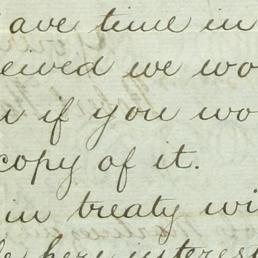 have time in
ewed we wo
if you wo
copy of it.
in treaty wi
here interest